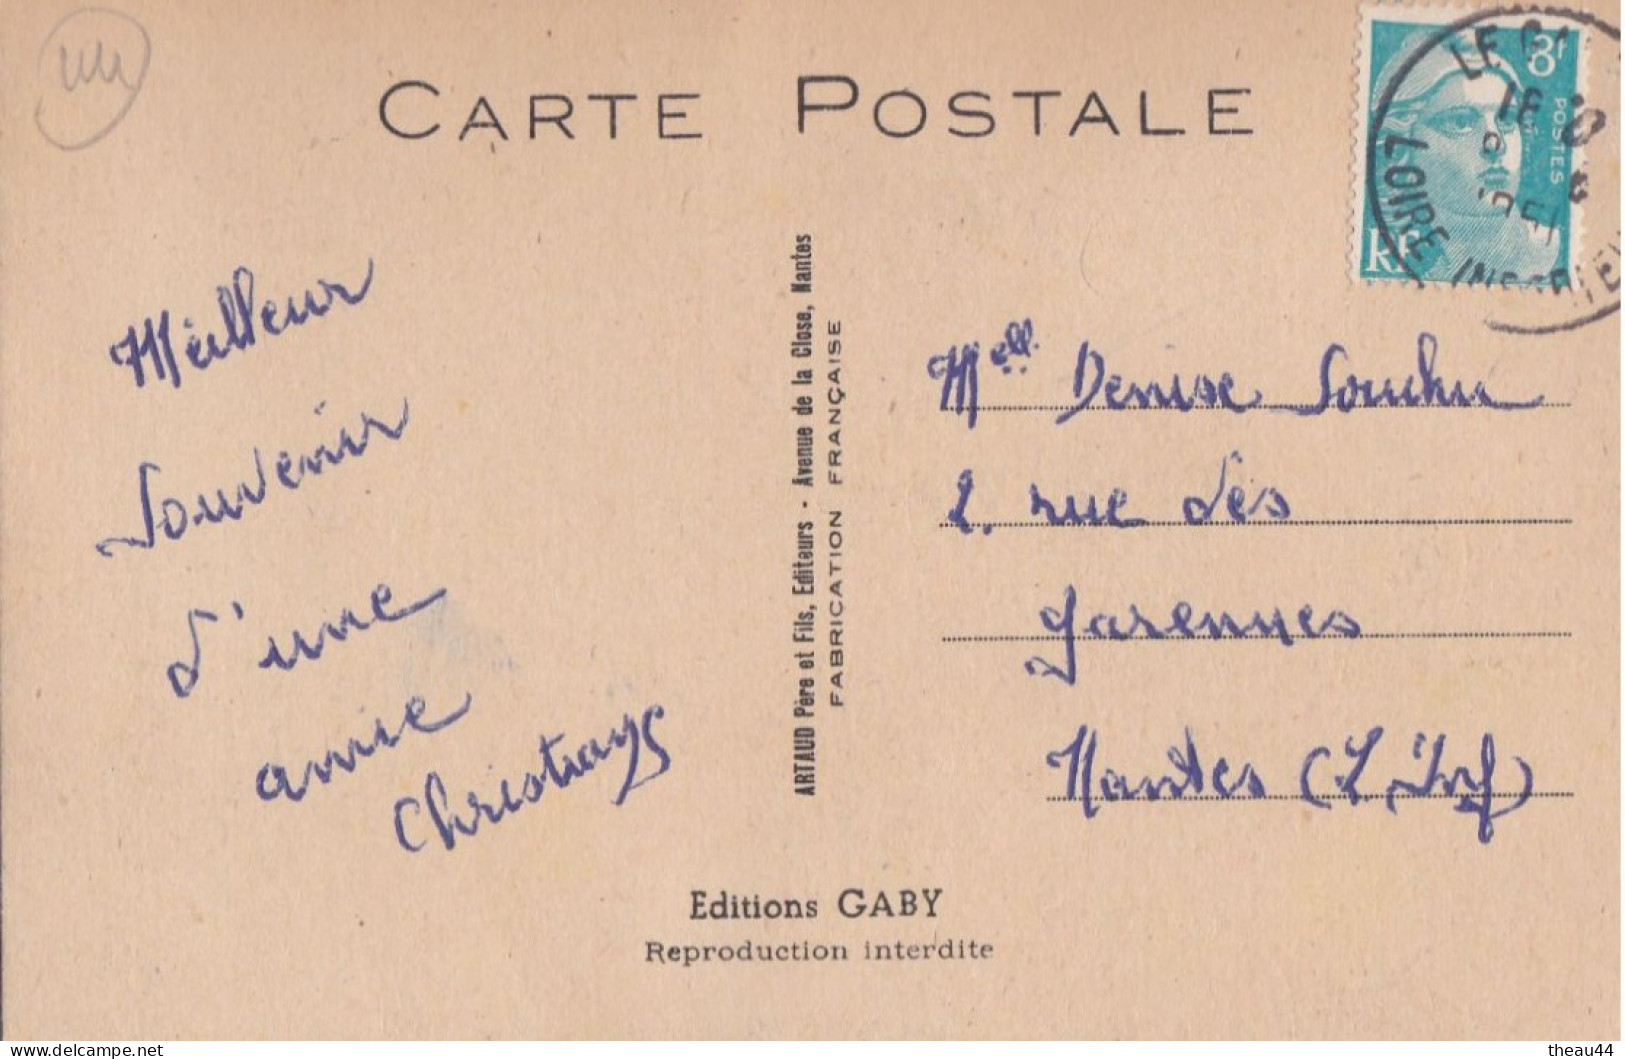 44
CARTE POSTALE
8f
POSTES
RF
LOIRE
1951
Meilleur
Souvenir
d'une
amie
ARTAUD Père et Fils, Editeurs - Avenue de la Close, Nantes
FABRICATION FRANÇAISE
Mell. Denise
2. rue des
garennes
Nantes (L Inf)
Editions GABY
Reproduction interdite
www.delcampe.net
theau44